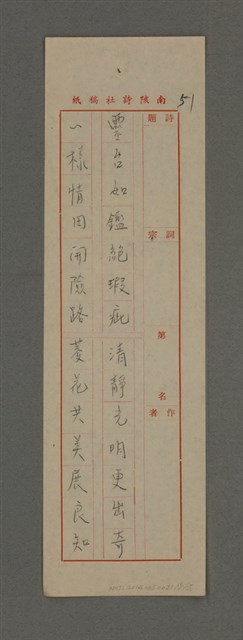 南陔詩社稿紙
51
詩題
詞宗
第 名
作者
靈台如鑑絕瑕疵 清靜光明更出奇
一樣情田開蔭路 菱花共美展良知